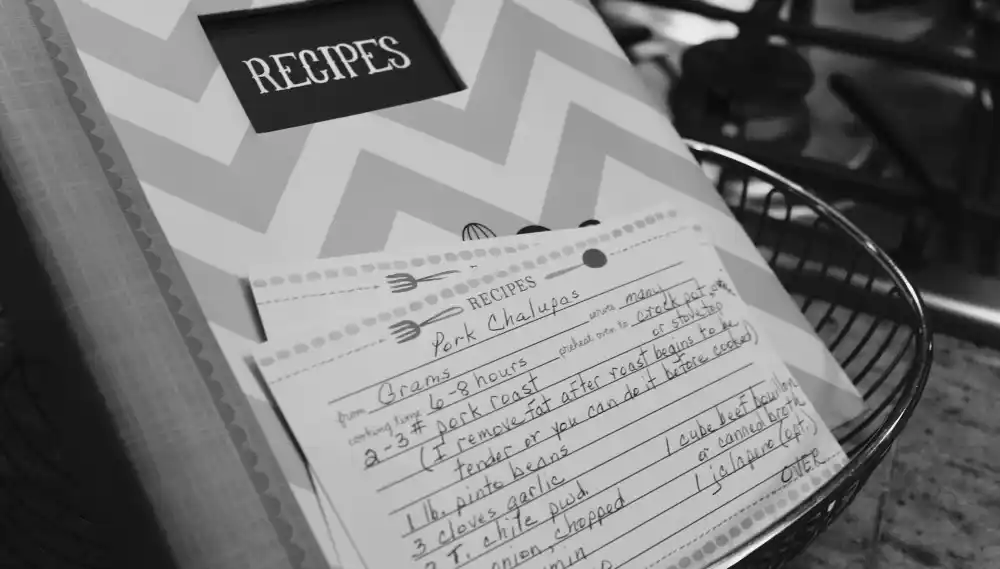 RECIPES
RECIPES
Pork Chalupas
from Grams serves many
cooking time 6-8 hours preheat oven to crock pot
or stove top
2-3# pork roast
(I remove fat after roast begins to be
tender or you can do it before cooked)
1 lb. pinto beans
3 cloves garlic 1 cube beef bouillon
T. chile pwd. or canned broth
onion, chopped 1 jalapeno (opt.)
OVER